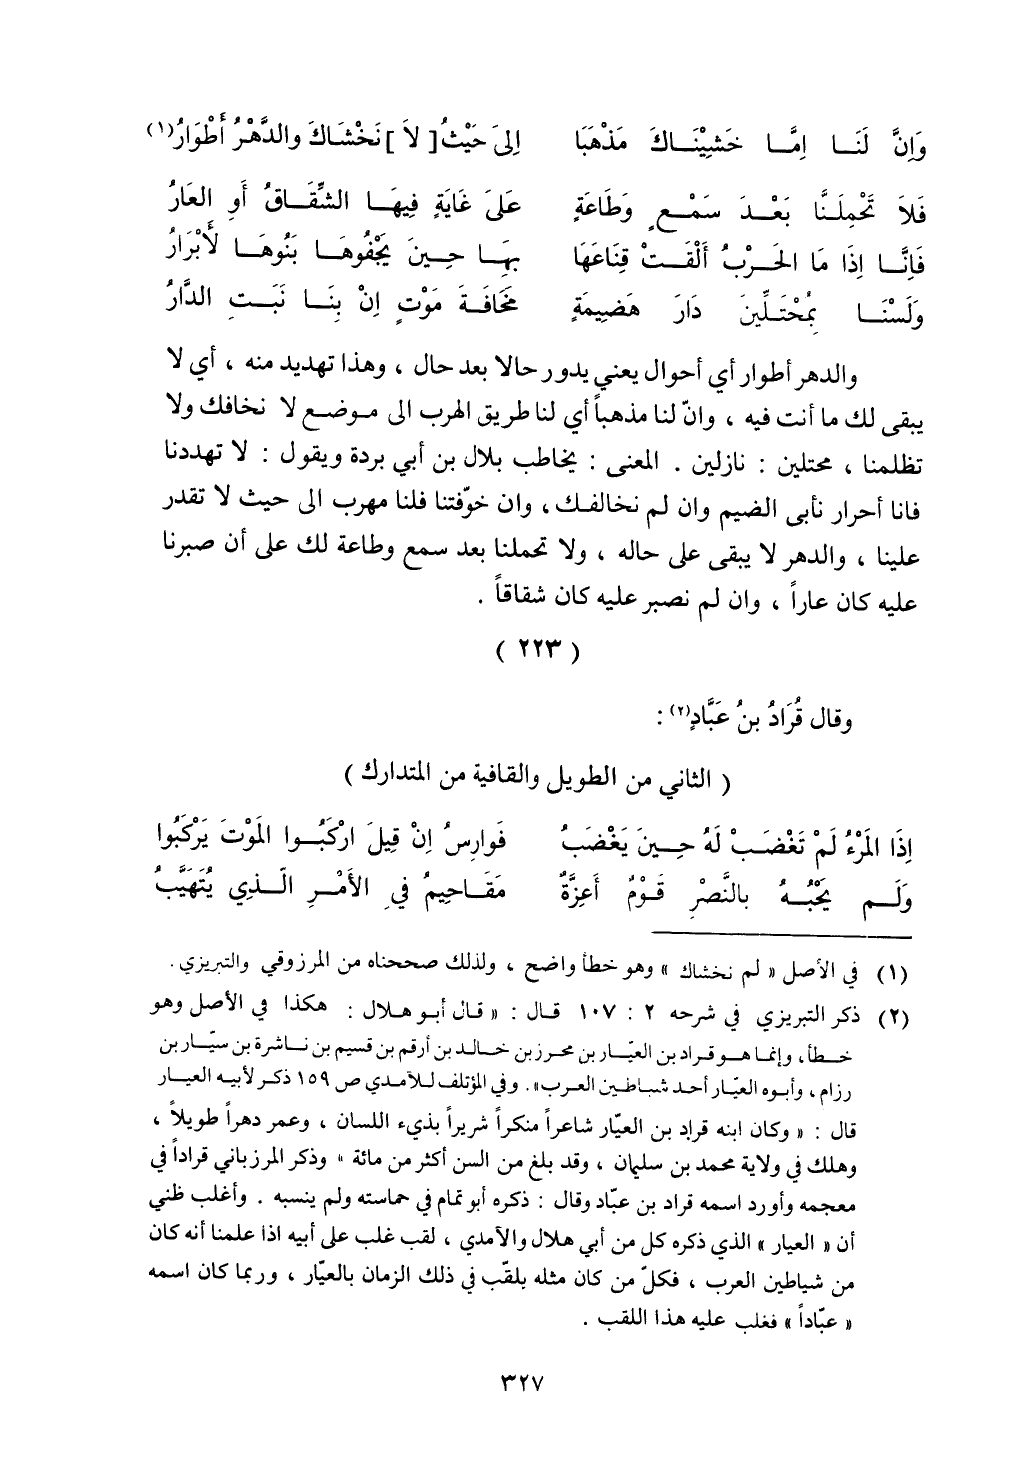 وَإِنَّ لَنَا إِمَّا خَشِيْنَاكَ مَذْهَبَا إِلىَ حَيْثُ [ لاَ ] نَخْشَاكَ والدَّهْرُ أَطْوَارُ(١)
فَلاَ تَحْمِلَنَّا بَعْدَ سَمْعٍ وَطَاعَةٍ عَلىَ غَايَةٍ فِيهَا الشِّقَاقُ أَوِ العَارُ
فَإِنَّا إِذَا مَا الحَرْبُ أَلْقَتْ قِنَاعَهَا بِهَا حِينَ يَجْفُوهَا بَنُوهَا لأَبْرَارُ
وَلَسْنَا بِمُحْتَلِّينَ دَارَ هَضِيمَةٍ مَخَافَةَ مَوْتٍ إِنْ بِنَا نَبَتِ الدَّارُ
والدهر أطوار أي أحوال يعني يدور حالا بعد حال ، وهذا تهديد منه ، أي لا
يبقى لك ما أنت فيه ، وانّ لنا مذهباً أي لنا طريق الهرب الى موضع لا نخافك ولا
تظلمنا ، محتلين : نازلين . المعنى : يخاطب بلال بن أبي بردة ويقول : لا تهددنا
فانا أحرار نأبى الضيم وان لم نخالفك ، وان خوّفتنا فلنا مهرب الى حيث لا تقدر
علينا ، والدهر لا يبقى على حاله ، ولا تحملنا بعد سمع وطاعة لك على أن صبرنا
عليه كان عاراً ، وان لم نصبر عليه كان شقاقاً .
( ٢٢٣ )
وقال قُرَادُ بنُ عَبَّادٍ(٢) :
( الثاني من الطويل والقافية من المتدارك )
إِذَا المَرْءُ لَمْ تَغْضَبْ لَهُ حِينَ يَغْضَبُ فَوارِسُ إِنْ قِيلَ ارْكَبُوا المَوْتَ يَرْكَبُوا
وَلَم يَحْبُهُ بالنَّصْرِ قَوْمٌ أَعِزَّةٌ مَقَاحِيمُ فيِ الأَمْرِ الَّذِي يُتَهَيَّبُ
(١) في الأصل « لم نخشاك » وهو خطأ واضح ، ولذلك صححناه من المرزوقي والتبريزي .
(٢) ذكر التبريزي في شرحه ٢ : ١٠٧ قال : « قال أبو هلال : هكذا في الأصل وهو
خطأ، وإنما هو قراد بن العيّار بن محرز بن خالد بن أرقم بن قسيم بن ناشرة بن سيّار بن
رزام ، وأبوه العيّار أحد شياطين العرب». وفي المؤتلف للآمدي ص ١٥٩ ذكر لأبيه العيار
قال : « وكان ابنه قراد بن العيّار شاعراً منكراً شريراً بذيء اللسان ، وعمر دهراً طويلاً ،
وهلك في ولاية محمد بن سليمان ، وقد بلغ من السن أكثر من مائة » وذكر المرزباني قراداً في
معجمه وأورد اسمه قراد بن عبّاد وقال : ذكره أبو تمام في حماسته ولم ينسبه . وأغلب ظني
أن « العيار » الذي ذكره كل من أبي هلال والآمدي ، لقب غلب على أبيه اذا علمنا أنه كان
من شياطين العرب ، فكلّ من كان مثله يلقّب في ذلك الزمان بالعيّار ، وربما كان اسمه
« عبّاداً » فغلب عليه هذا اللقب .
٣٢٧